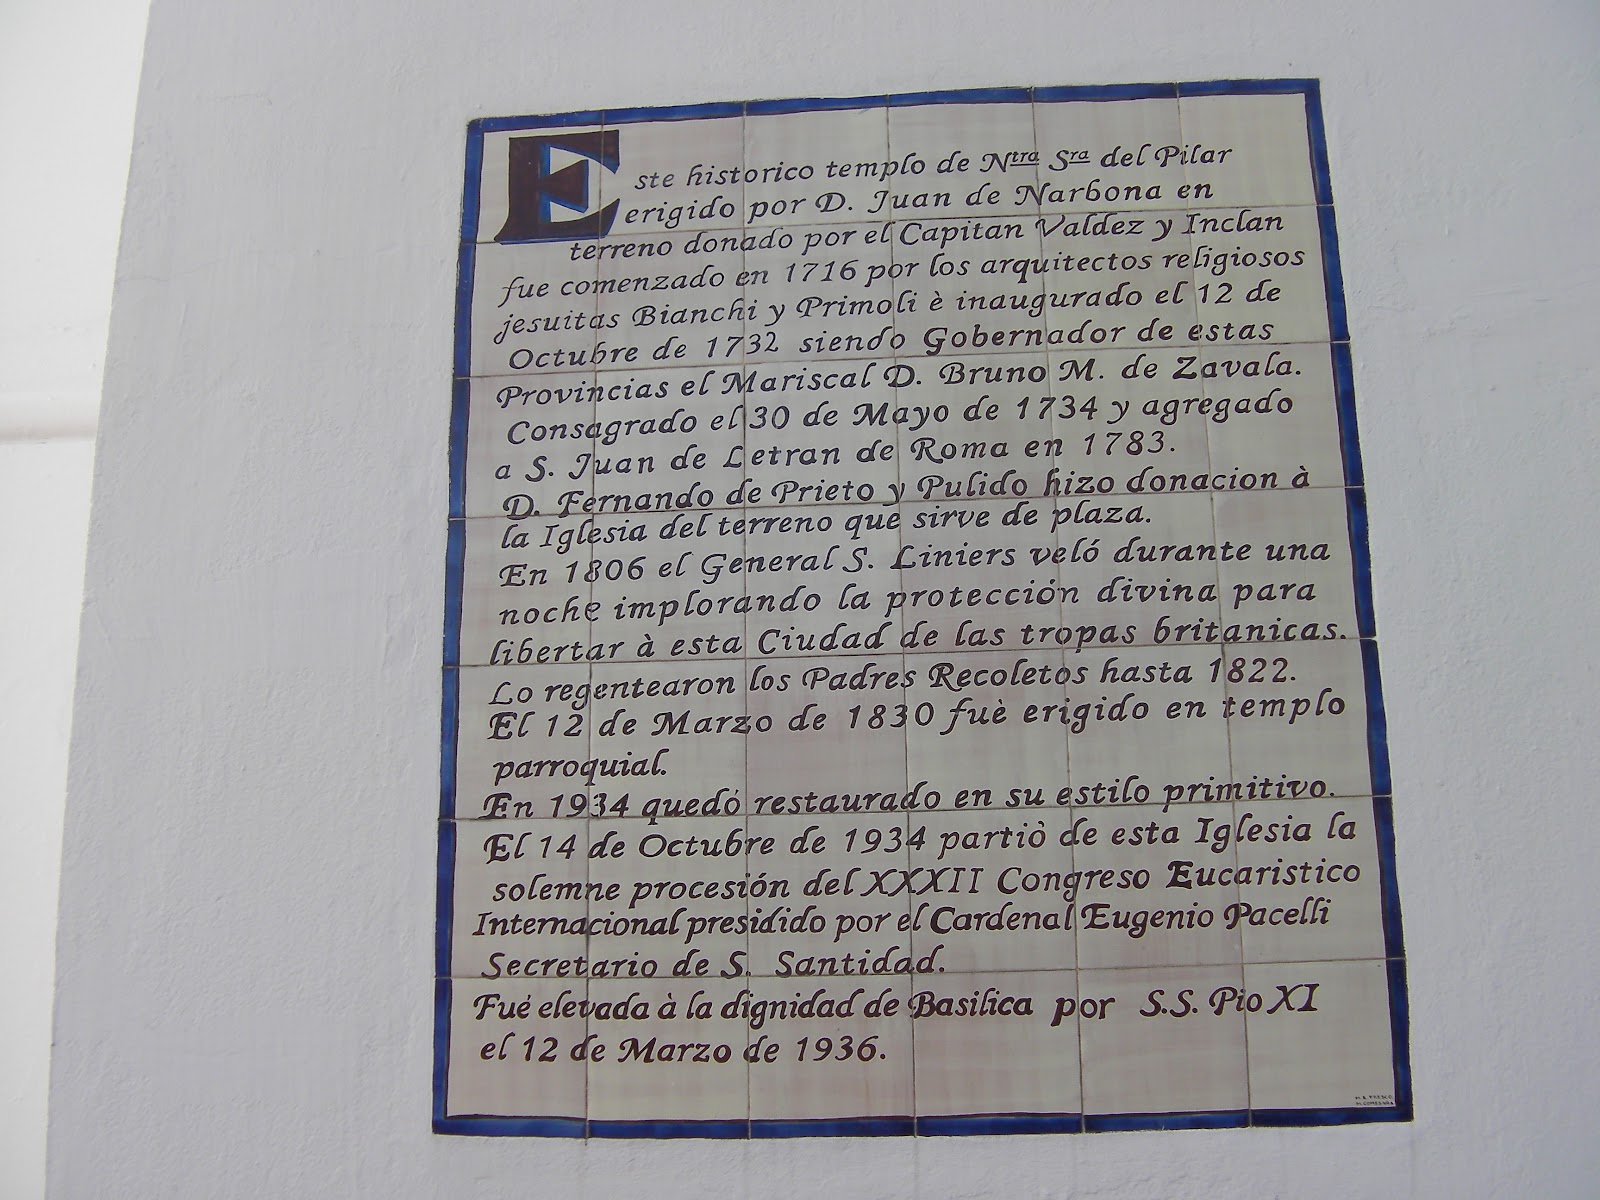 Este historico templo de Ntra Sra del Pilar
erigido por D. Juan de Narbona en
terreno donado por el Capitan Valdez y Inclan
fue comenzado en 1716 por los arquitectos religiosos
jesuitas Bianchi y Primoli è inaugurado el 12 de
Octubre de 1732 siendo Gobernador de estas
Provincias el Mariscal D. Bruno M. de Zavala.
Consagrado el 30 de Mayo de 1734 y agregado
a S. Juan de Letran de Roma en 1783.
D. Fernando de Prieto y Pulido hizo donacion à
la Iglesia del terreno que sirve de plaza.
En 1806 el General S. Liniers veló durante una
noche implorando la protección divina para
libertar à esta Ciudad de las tropas britanicas.
Lo regentearon los Padres Recoletos hasta 1822.
El 12 de Marzo de 1830 fuè erigido en templo
parroquial.
En 1934 quedó restaurado en su estilo primitivo.
El 14 de Octubre de 1934 partiò de esta Iglesia la
solemne procesión del XXXII Congreso Eucaristico
Internacional presidido por el Cardenal Eugenio Pacelli
Secretario de S. Santidad.
Fué elevada à la dignidad de Basilica por S.S. Pio XI
el 12 de Marzo de 1936.